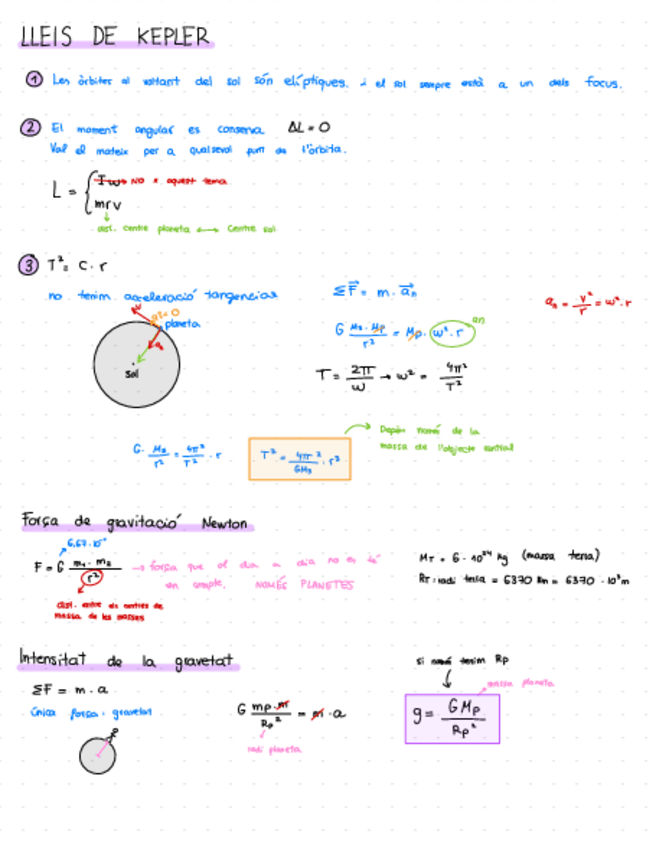 LLEIS DE KEPLER
1 Les òrbites al voltant del sol són el·líptiques. i el sol sempre està a un dels focus.
2 El moment angular es conserva ΔL = 0
Val el mateix per a qualsevol punt de l'òrbita.
L = { Iω → NO x aquest tema
mrv
dist. centre planeta ↔ Centre sol
3 T² = C · r
no tenim acceleració tangencial
ΣF = m · aₙ
aₙ = v²/r = ω² · r
at = 0
planeta
sol
G Ms · Mp / r² = Mp · ω² · r
an
T = 2π/ω → ω² = 4π²/T²
G · Ms/r² = 4π²/T² · r
T² = 4π²/GMs · r³
Depèn només de la
massa de l'objecte central
Força de gravitació Newton
6,67·10
F = G m₁ · m₂ / r²
→ força que al dia a dia no es té
en compte. NOMÉS PLANETES
dist. entre els centres de
massa de les masses
MT = 6 · 10²⁴ kg (massa terra)
RT: radi terra = 6370 km = 6370 · 10³m
Intensitat de la gravetat
ΣF = m · a
única força: gravetat
G mp · m / Rp² = m · a
radi planeta
si només tenim Rp
massa planeta
g = G Mp / Rp²